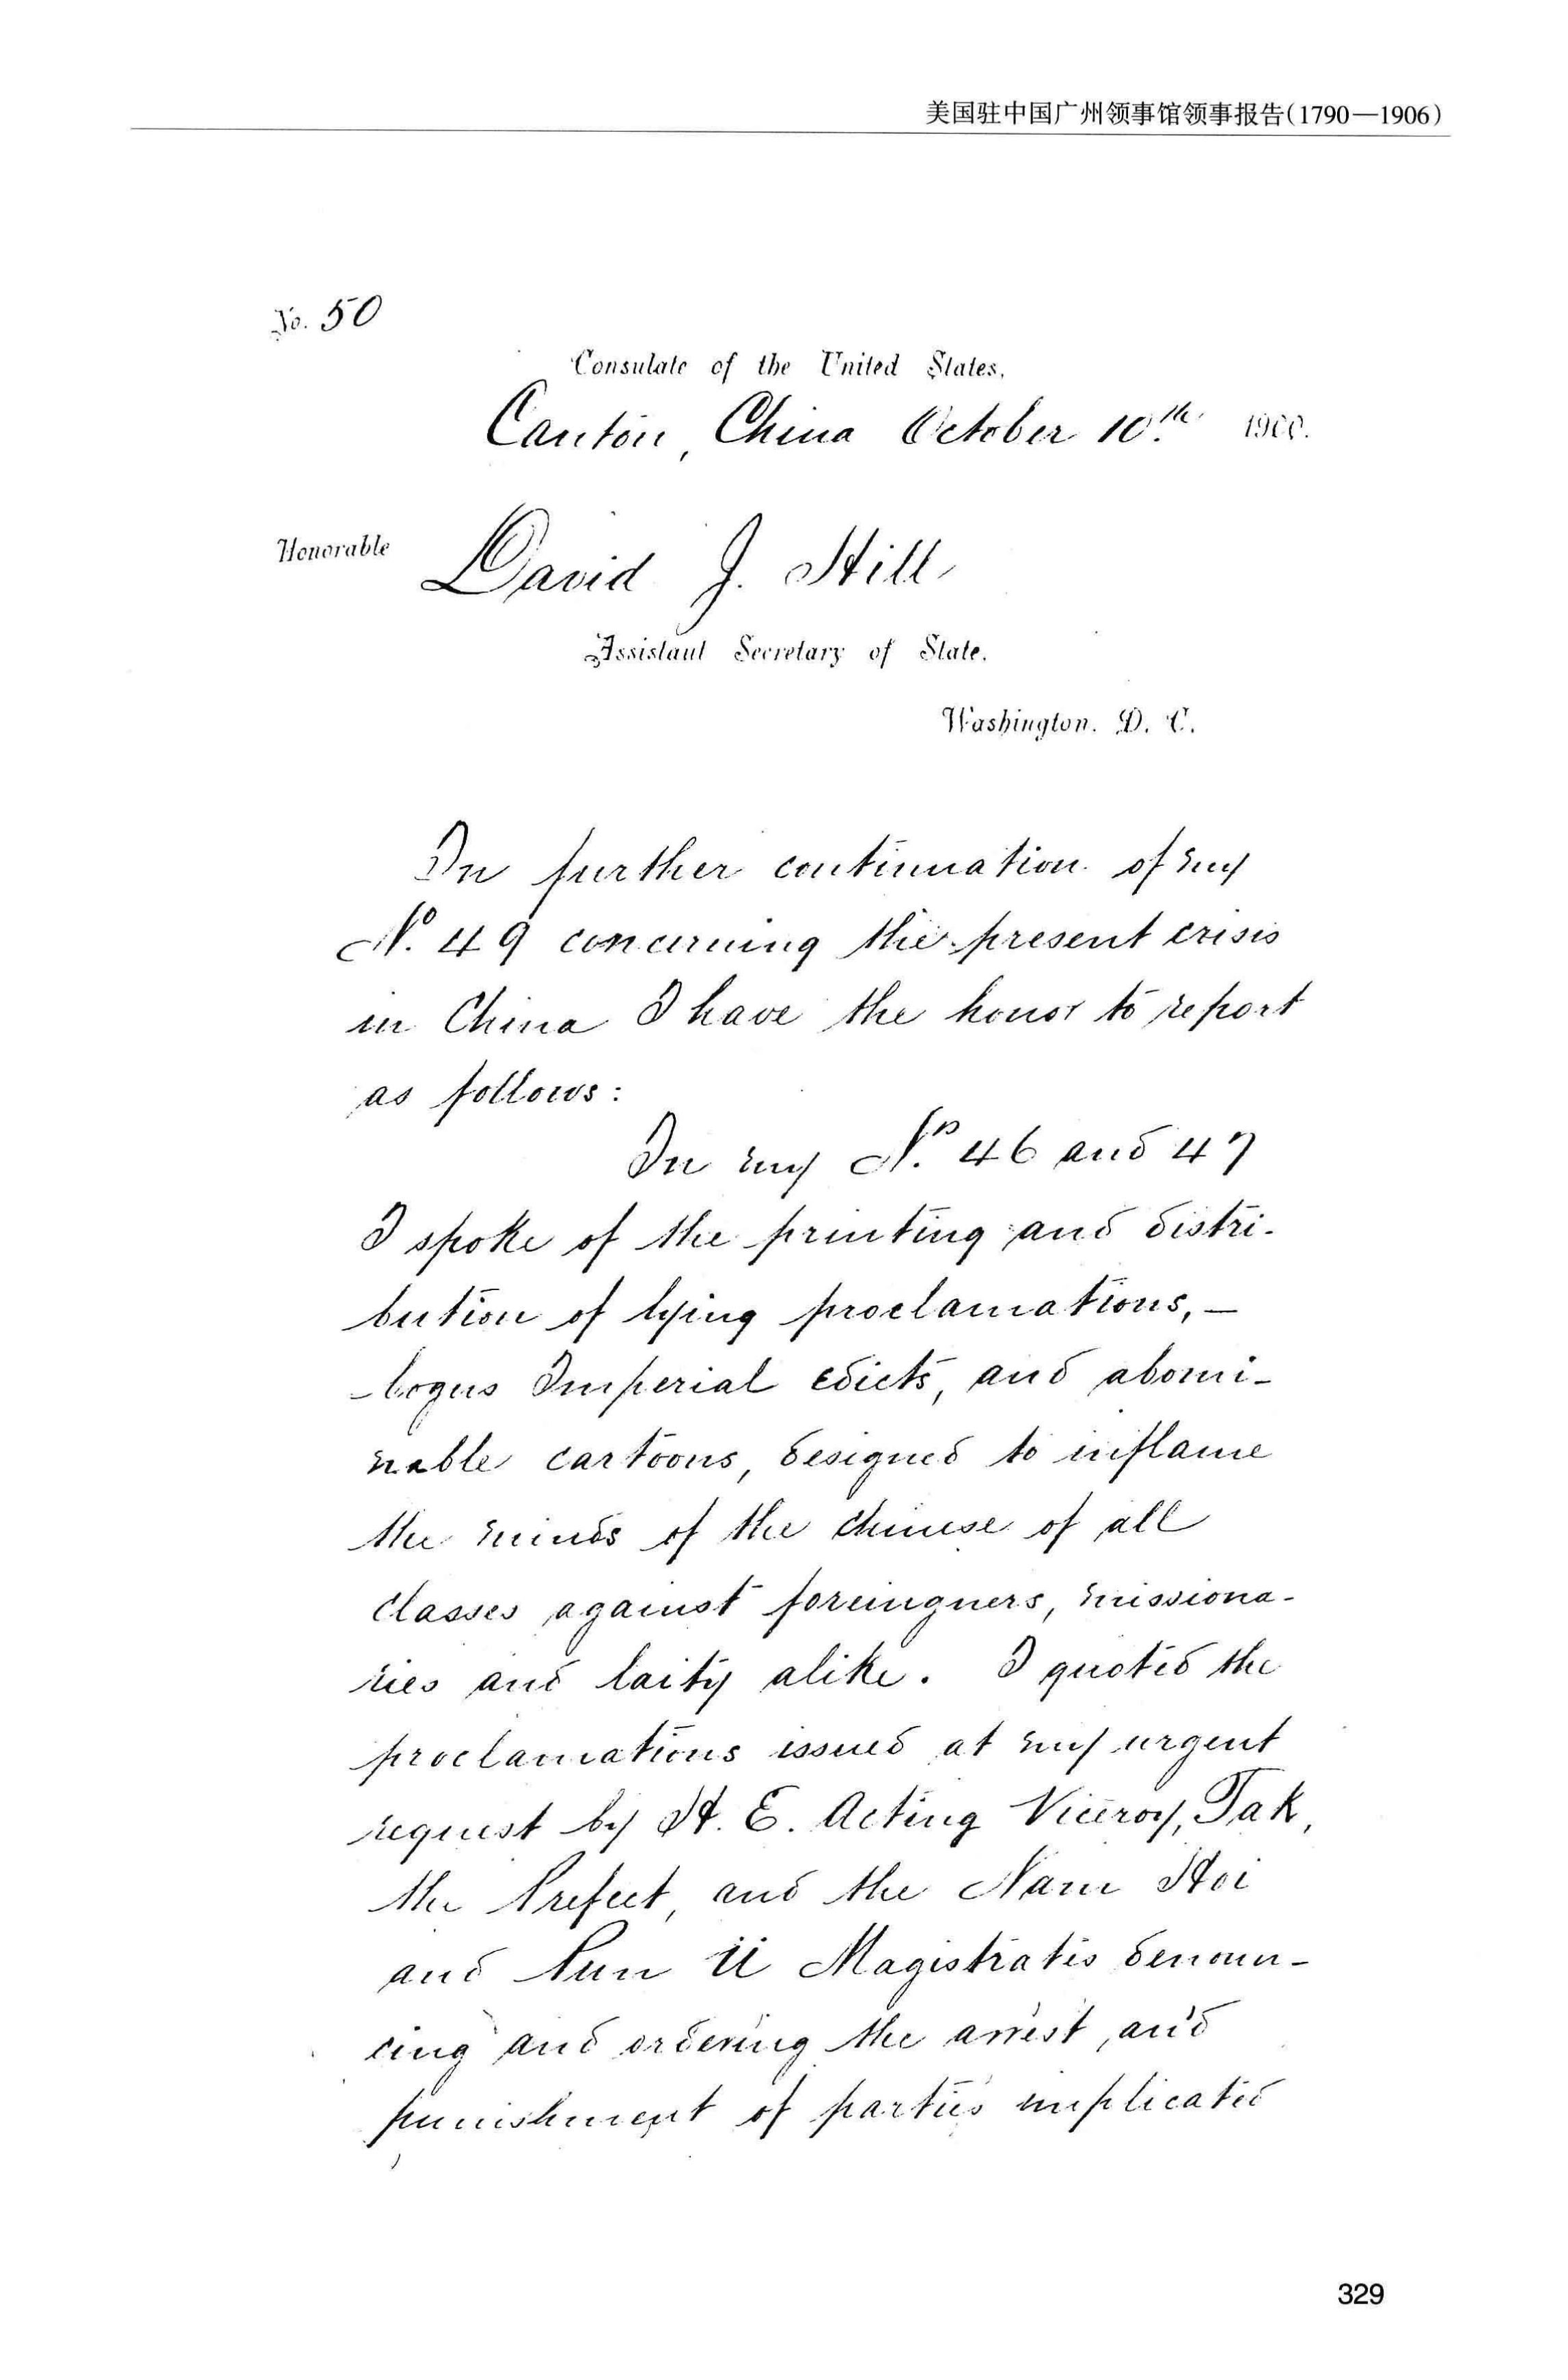 美国驻中国广州领事馆领事报告(1790—1906)
No. 50
Consulate of the United States,
Canton, China October 10th. 1900.
Honorable
David J. Hill,
Assistant Secretary of State.
Washington. D. C.
In further continuation of my
No. 49 concerning the present crisis
in China I have the honor to report
as follows:
In my No. 46 and 47
I spoke of the printing and distri-
bution of lying proclamations, —
- bogus Imperial edicts, and abomi-
nable cartoons, designed to inflame
the minds of the Chinese of all
classes against foreingners, missiona-
ries and laity alike. I quoted the
proclamations issued at my urgent
request by H. E. Acting Viceroy, Tak,
the Prefect, and the Nam Hoi
and Pun Ü Magistrates denoun-
cing and ordering the arrest, and
punishment of parties implicated
329